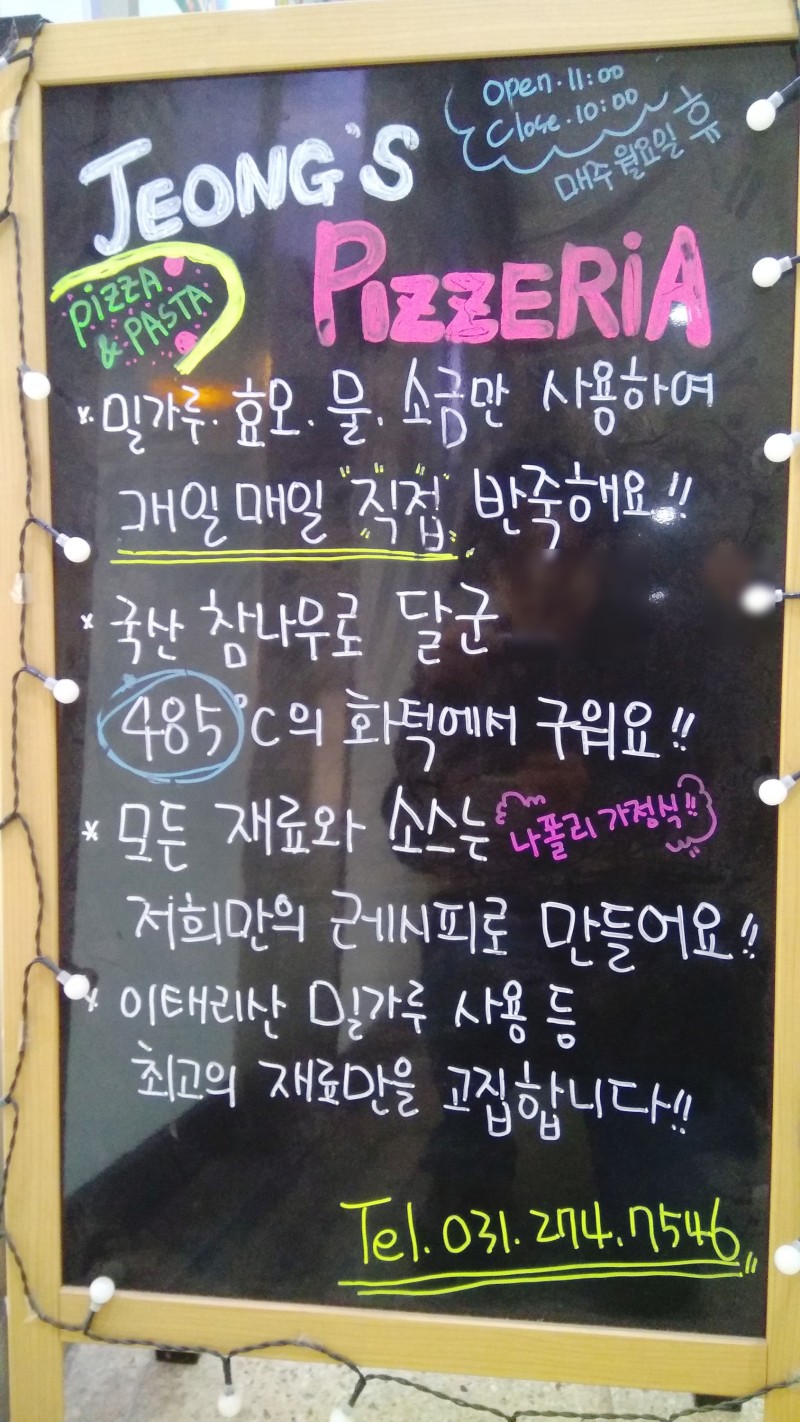 Open. 11:00
Close. 10:00
매주 월요일 휴
JEONG'S
PIZZERIA
PIZZA
& PASTA
*. 밀가루. 효모. 물. 소금만 사용하여
매일매일 "직접" 반죽해요!!
* 국산 참나무로 달군
485°C의 화덕에서 구워요!!
* 모든 재료와 소스는 나폴리 가정식!!
저희만의 레시피로 만들어요!!
* 이태리산 밀가루 사용 등
최고의 재료만을 고집합니다!!
Tel. 031. 274. 7546